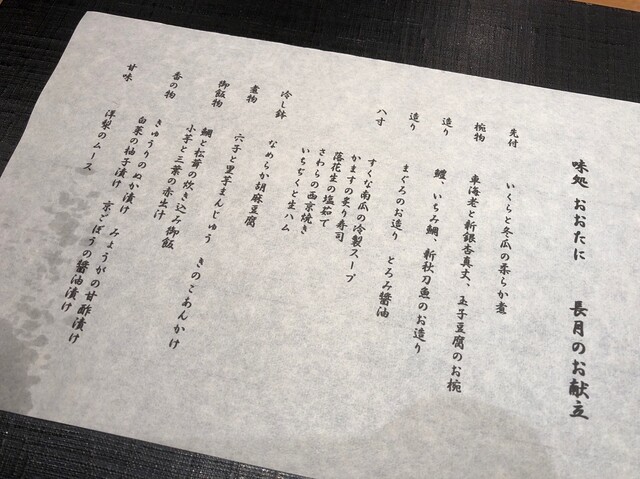 味処 おおたに 長月のお献立
先付
いくらと冬瓜の柔らか煮
椀物
車海老と新銀杏真丈、玉子豆腐のお椀
造り
鱧、いちみ鯛、新秋刀魚のお造り
造り
まぐろのお造り とろみ醬油
八寸
すくな南瓜の冷製スープ
かますの炙り寿司
落花生の塩茹で
さわらの西京焼き
いちぢくと生ハム
冷し鉢
なめらか胡麻豆腐
煮物
穴子と里芋まんじゅう きのこあんかけ
御飯物
鯛と松茸の炊き込み御飯
小芋と三葉の赤出汁
香の物
きゅうりのぬか漬け みょうがの甘酢漬け
白菜の柚子漬け 京ごぼうの醬油漬け
甘味
洋梨のムース